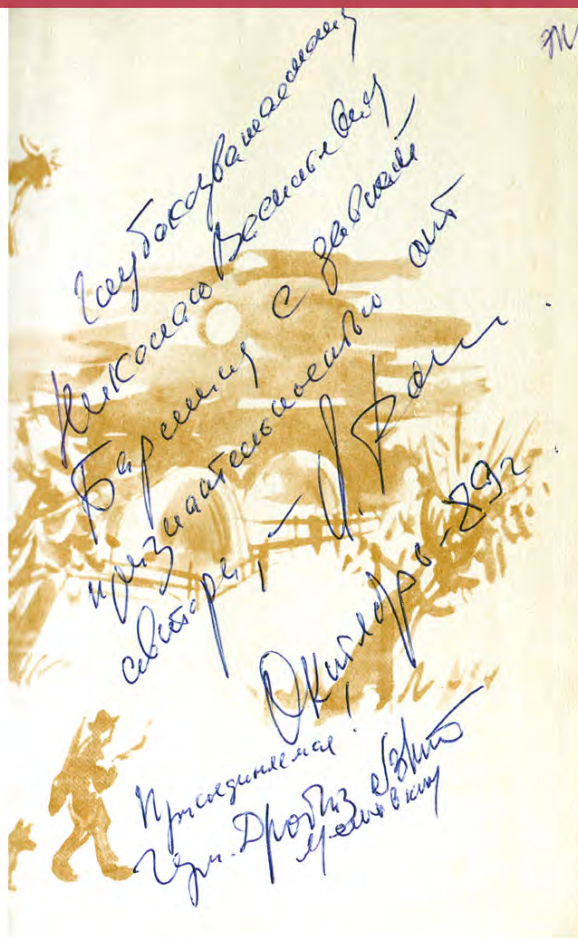 Глубокоуважаемому
Николаю Васильевичу
с давней
признательностью от
автора,
Октябрь-89г.
Присоединяемся!
Герм. Дробиз